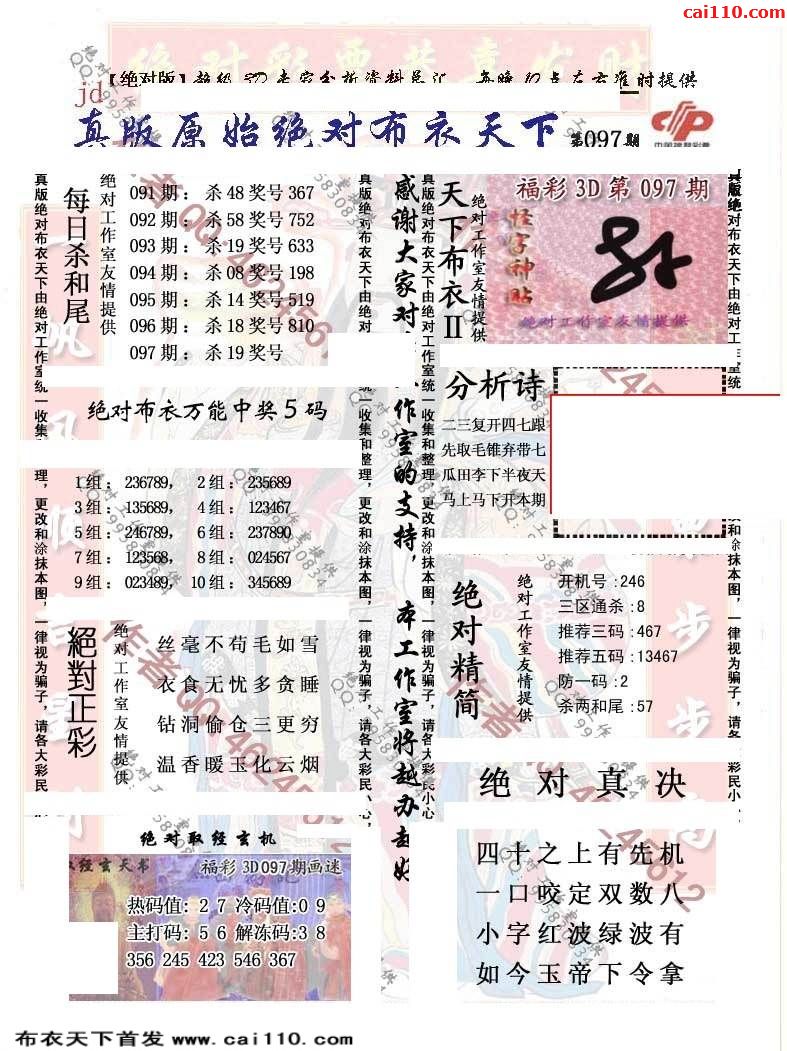 cai110.com
绝对彩票恭喜发财
jd
真版原始绝对布衣天下 第097期
中国福利彩票
真版绝对布衣天下由绝对工作室统一收集和整理，更改和涂抹本图，一律视为骗子，请各大彩民小心
每日杀和尾
绝对工作室友情提供
091期：杀48奖号367
092期：杀58奖号752
093期：杀19奖号633
094期：杀08奖号198
095期：杀14奖号519
096期：杀18奖号810
097期：杀19奖号
绝对布衣万能中奖5码
1组：236789， 2组：235689
3组：135689， 4组：123467
5组：246789， 6组：237890
7组：123568， 8组：024567
9组：023489， 10组：345689
絕對正彩
绝对工作室友情提供
丝毫不苟毛如雪
衣食无忧多贪睡
钻洞偷仓三更穷
温香暖玉化云烟
绝对取经玄机
取经玄天书
福彩3D097期画迷
热码值：2 7 冷码值:0 9
主打码：5 6 解冻码:3 8
356 245 423 546 367
真版绝对布衣天下由绝对
统一收集和整理，更改和涂抹本图，一律视为骗子，请各大彩民小心，
感谢大家对
作室的支持，本工作室将越办越好
真版绝对布衣天下由绝对工作室统一收集和整理，更改和涂抹本图，一律视为骗子，请各大彩民小心，
天下布衣II
绝对工作室友情提供
福彩3D第097期
怪字神贴
绝对工作室友情提供
分析诗
二三复开四七跟
先取毛锥弃带七
瓜田李下半夜天
马上马下开本期
绝对精简
绝对工作室友情提供
开机号:246
三区通杀:8
推荐三码:467
推荐五码:13467
防一码:2
杀两和尾:57
绝对真决
四十之上有先机
一口咬定双数八
小字红波绿波有
如今玉帝下令拿
真版绝对布衣天下由绝对工作室统一收集和整理，更改和涂抹本图，一律视为骗子，请各大彩民小心
布衣天下首发 www.cai110.com